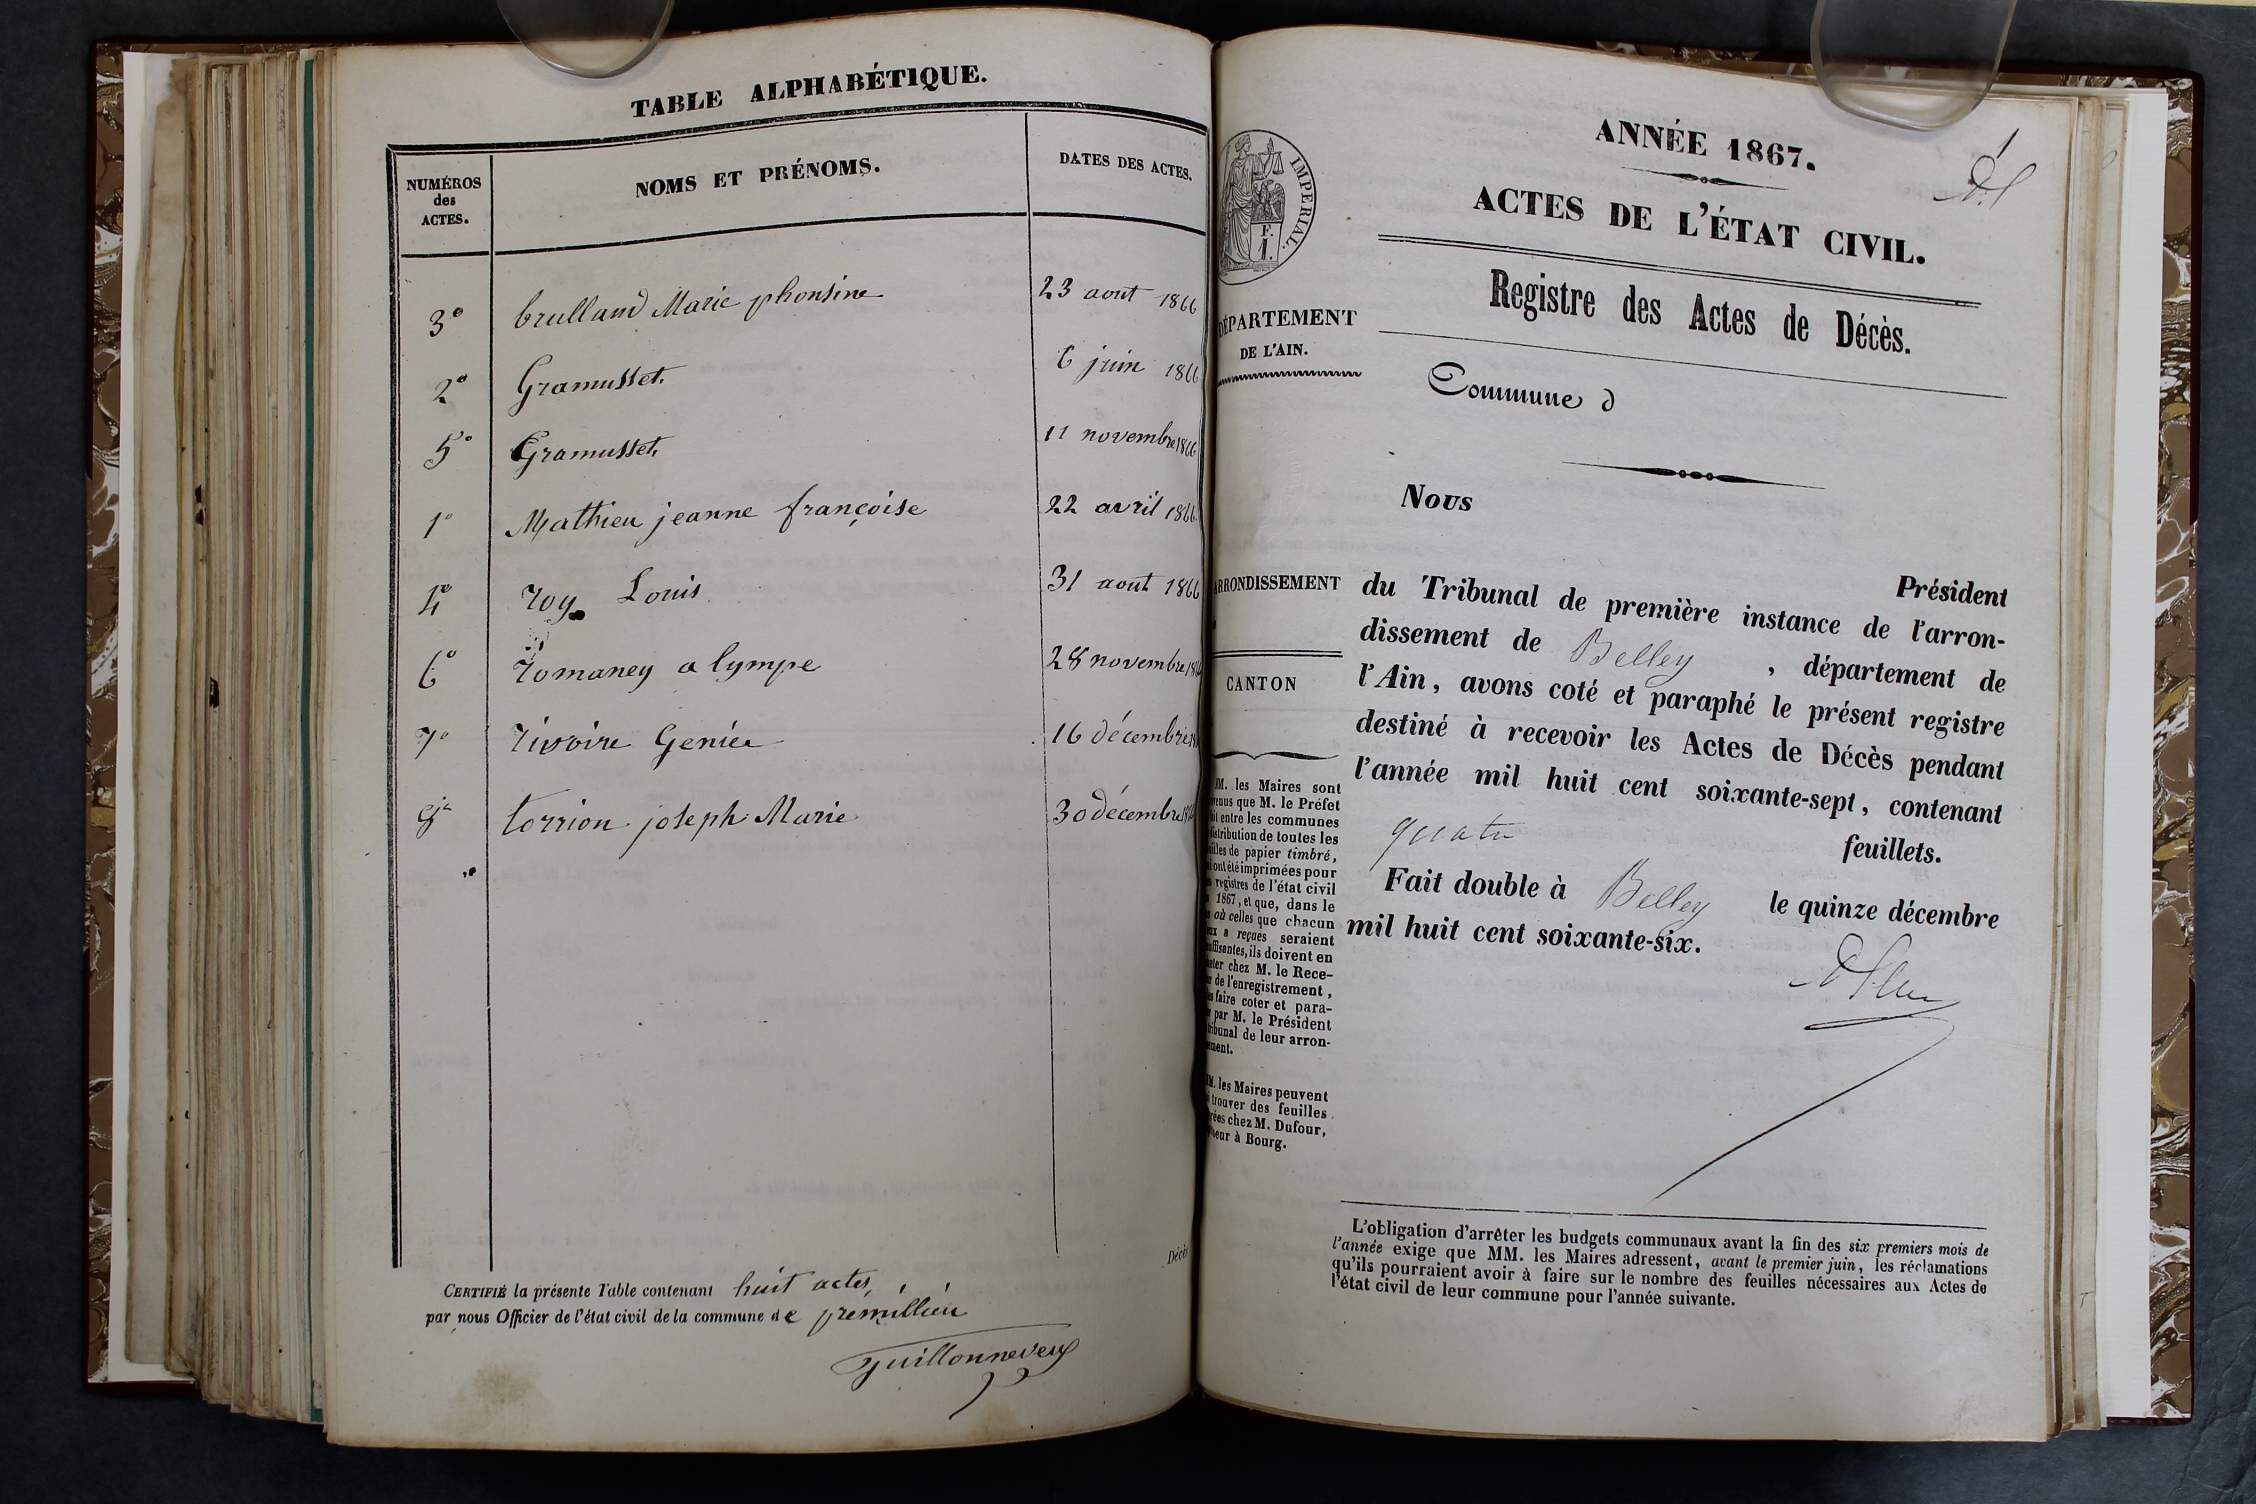 TABLE ALPHABÉTIQUE.
NUMÉROS
des
ACTES.
NOMS ET PRÉNOMS.
DATES DES ACTES.
3° brulland Marie phonsine 23 aout 1866
2° Gramusset. 6 juin 1866
5° Gramusset. 11 novembre 1866
1° Mathieu jeanne françoise 22 avril 1866
4° roy Louis 31 aout 1866
6° romaney olympe 28 novembre
7° rivoire Genie 16 décembre
8° torrion joseph Marie 30 décembre
Décès
CERTIFIÉ la présente Table contenant huit actes,
par nous Officier de l'état civil de la commune de premillieu
Guillonneveu
1
ANNÉE 1867.
ACTES DE L'ÉTAT CIVIL.
Registre des Actes de Décès.
IMPERIAL.
F.
1.
DÉPARTEMENT
DE L'AIN.
Commune d
Nous
Président
ARRONDISSEMENT
CANTON
du Tribunal de première instance de l'arron-
dissement de Belley, département de
l'Ain, avons coté et paraphé le présent registre
destiné à recevoir les Actes de Décès pendant
l'année mil huit cent soixante-sept, contenant
quatre feuillets.
Fait double à Belley le quinze décembre
mil huit cent soixante-six.
MM. les Maires sont
que M. le Préfet
entre les communes
distribution de toutes les
de papier timbré,
ont été imprimées pour
registres de l'état civil
1867, et que, dans le
où celles que chacun
a reçues seraient
ils doivent en
chez M. le Rece-
de l'enregistrement,
faire coter et para-
par M. le Président
tribunal de leur arron-
MM. les Maires peuvent
trouver des feuilles
chez M. Dufour,
à Bourg.
L'obligation d'arrêter les budgets communaux avant la fin des six premiers mois de
l'année exige que MM. les Maires adressent, avant le premier juin, les réclamations
qu'ils pourraient avoir à faire sur le nombre des feuilles nécessaires aux Actes de
l'état civil de leur commune pour l'année suivante.